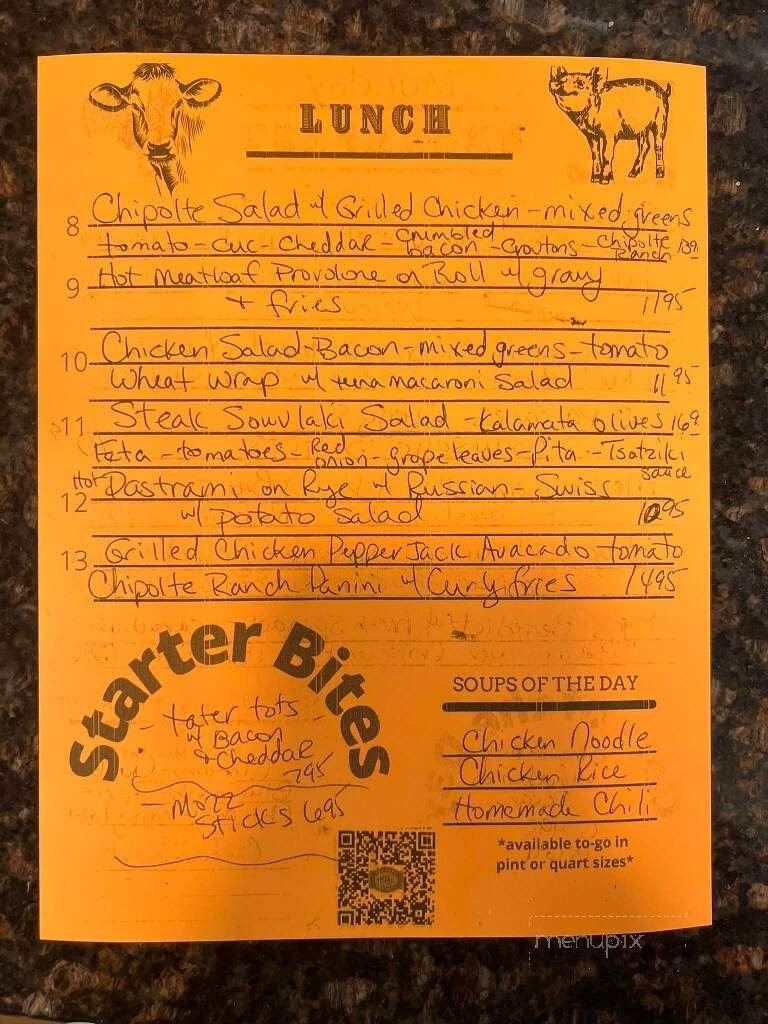 LUNCH
8 Chipolte Salad w/ Grilled Chicken - mixed greens
tomato - cuc - cheddar - crumbled bacon - croutons - Chipolte Ranch
9 Hot Meatloaf Provolone on Roll w/ gravy
+ fries 1195
10 Chicken Salad - Bacon - mixed greens - tomato
Wheat Wrap w/ tuna macaroni Salad 11 95
11 Steak Souvlaki Salad - Kalamata olives
Feta - tomatoes - Red onion - grapeleaves - Pita - Tsatziki Sauce
12 Hot Pastrami on Rye w/ Russian - Swiss
w/ potato salad 1095
13 Grilled Chicken Pepper Jack Avacado tomato
Chipolte Ranch Panini w/ Curly fries 1495
Starter Bites
- tater tots -
w/ Bacon
& Cheddar
795
- Mozz
Sticks 695
SOUPS OF THE DAY
Chicken Noodle
Chicken Rice
Homemade Chili
*available to-go in
pint or quart sizes*
menupix